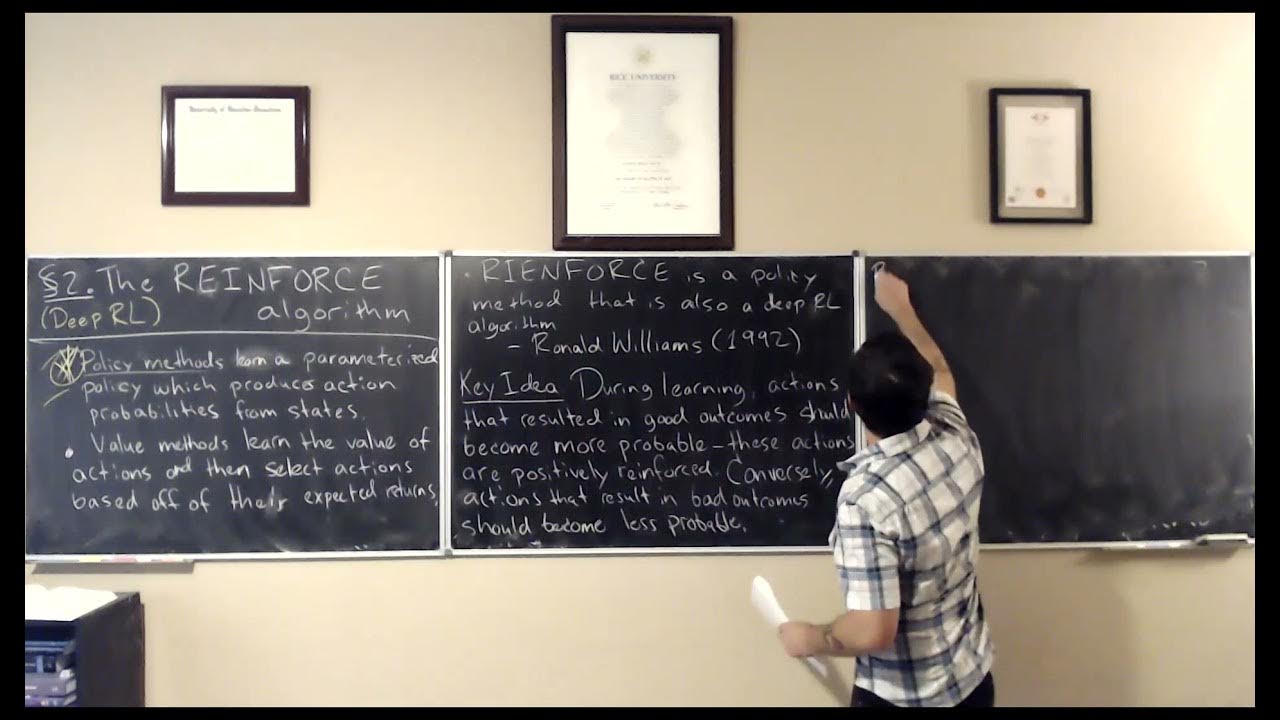 University of Houston-Downtown
RICE UNIVERSITY
§2. The REINFORCE
(Deep RL) algorithm
Policy methods learn a parameterized
policy which produces action
probabilities from states.
• Value methods learn the value of
actions and then select actions
based off of their expected returns.
• RIENFORCE is a policy
method that is also a deep RL
algorithm
- Ronald Williams (1992)
Key Idea During learning, actions
that resulted in good outcomes should
become more probable - these actions
are positively reinforced. Conversely,
actions that result in bad outcomes
should become less probable.